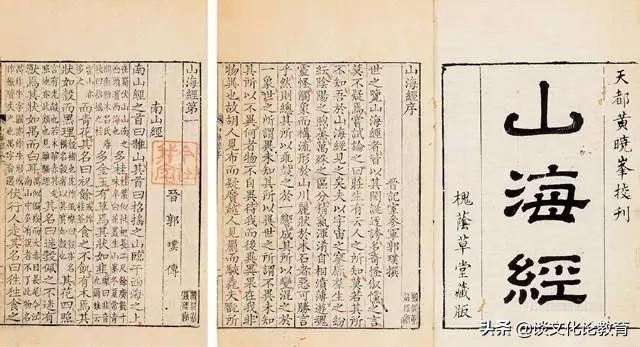 天都黃曉峯校刊
山海經
槐蔭草堂藏版
山海經序
晉記室參軍郭璞撰
世之覽山海經者皆以其閎誕迂誇多奇怪俶儻之言
莫不疑焉嘗試論之曰莊生有云人之所知莫若其所
不知吾於山海經見之矣夫以宇宙之寥廓羣生之紛
紜陰陽之煦蒸萬殊之區分精氣渾淆自相濆薄遊魂
靈怪觸象而構流形於山川麗狀於木石者惡可勝言
乎然則總其所以乖鼓之於一響成其所以變混之於
一象世之所謂異未知其所以異世之所謂不異未知
其所以不異何者物不自異待我而後異異果在我非
物異也故胡人見布而疑黂越人見罽而駭毳夫翫所
山海經第一
南山經
晉郭璞傳
南山經之首曰䧿山其首曰招搖之山臨于西海之上
多桂
多金玉有草焉其狀如韭
而青花其名曰祝餘食之不飢有木焉其
狀如穀而黑理其花四照
其名曰迷穀佩之不迷有
獸焉其狀如禺而白耳
伏行人走其名曰狌狌食之
头条 @谈文化论教育